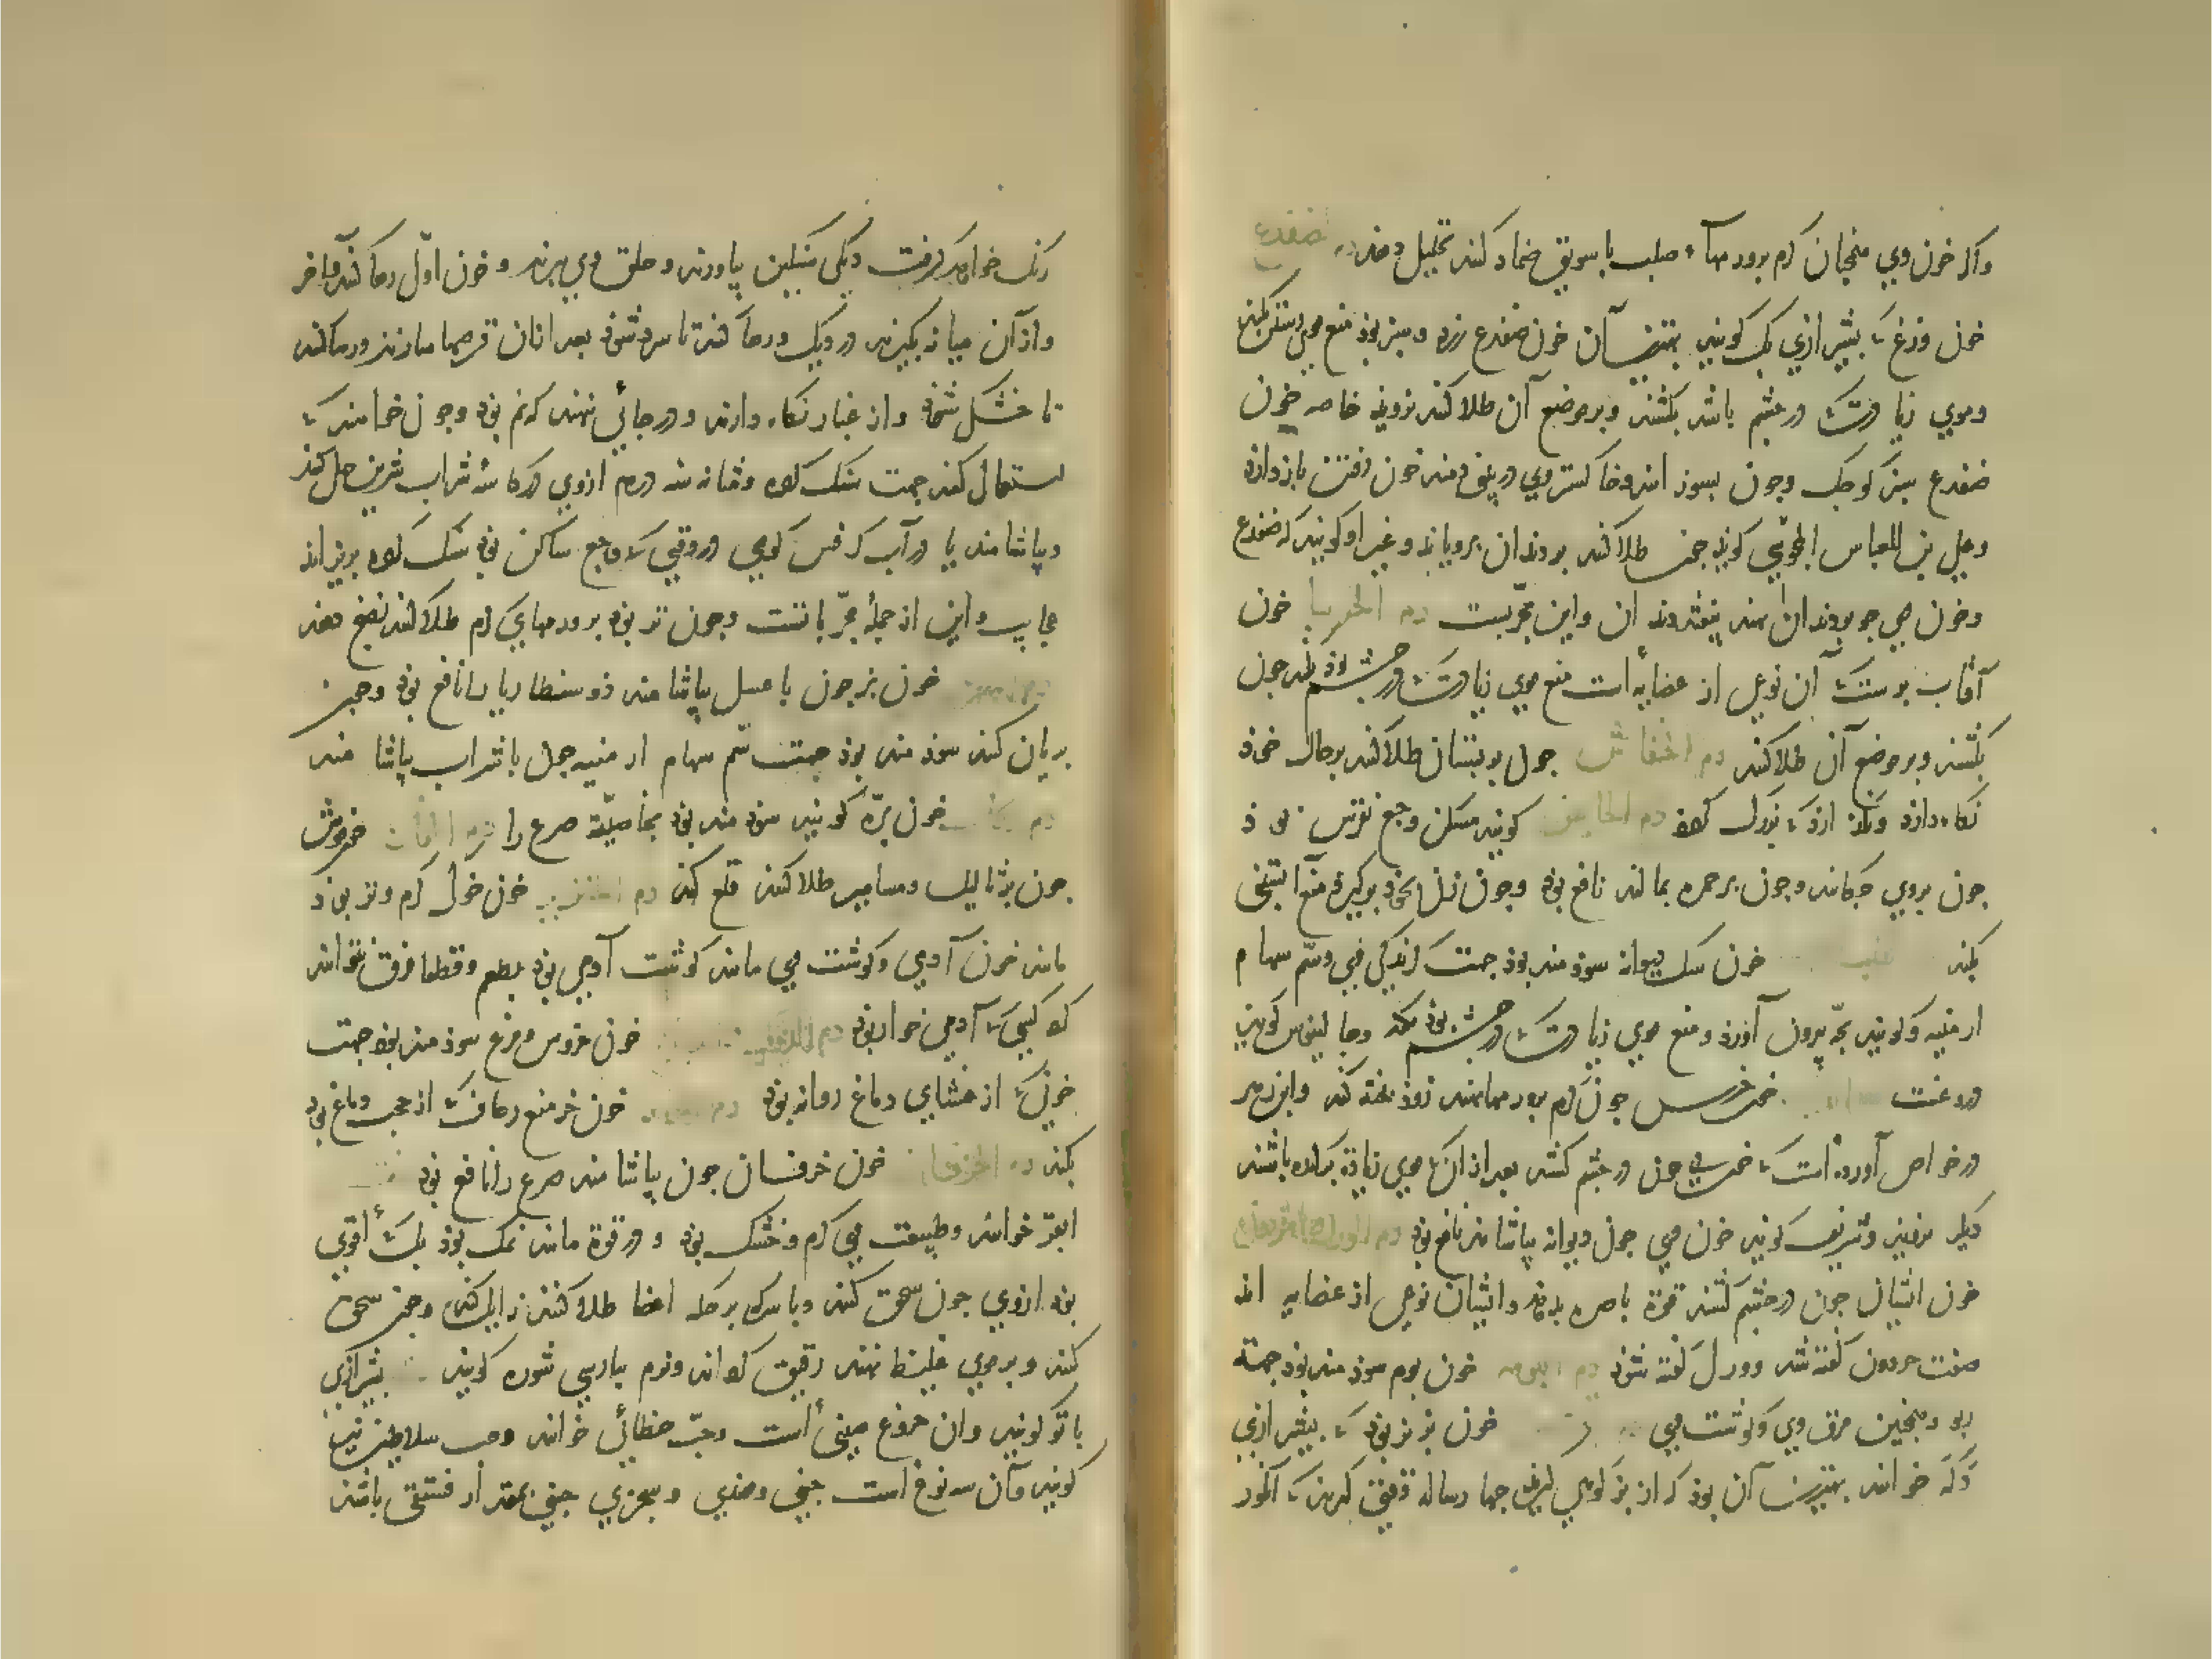 واکر خون وي همجنان کرم برورمهاء صلب با سویق ضماد کنند تحلیل دهد دم الضفدع
خون وزغ بشیرازي بک کویند بهترین آن خون ضفدع زرد و سبز بود منع موي رستن بکند
وموي زیادت که درچشم باشد بکنند وبرموضع آن طلا کنند نروید خاصه خون
ضفدع سبز کوجک وجون بسوزانند وخاکستر وي در بینی دمند خون رفتن بازدارد
وعلي بن العباس المجوسی کوید جون طلا کنند بر دندان برویاند وغیر او کویند که ضفدع
وخون وي جو بردندان نهند بیفتد دندان واین مجربست دم الحربا خون
آفتاب برستک آن نوعی از عضایه است منع موي زیادت که درچشم بود بکند جون
بکنند وبرموضع آن طلا کنند دم الخفاش جون بربستان طلا کنند برحال خود
نکاه دارد ونکذارد که بزرک شود دم الحایض کویند مسکن وجع نقرس بود
جون بروي جکانند وجون برحمره بمالند نافع بود وجون زن بخود برکیرد منع آبستنی
بکند دم الکلب خون سک دیوانه سود مند بود جهت کزندکی وی وسم سهام
ارمنیه وکویند بجه بیرون آورد ومنع موي زیادت که درچشم بود بکند وجالینوس کوید
دروغست خون خرس جون کرم برورمها نهند زود بخته کند وابن زهر
درخواص آورده است که خون وي جون درچشم کشند بعد از آن که موي زیاده برکنده باشند
دیکر نروید وشریف کوید خون وي جون دیوانه بیاشامد نافع بود دم الورل
خون ایشان جون درچشم کشند قوة باصره بدهد وایشان نوعی از عضایه اند
صفت حردون کفته شد و ورل کفته شود دم البومه خون بوم سود مند بود جهة
ربو وهمجنین مرق وي وکوشت وي خون بز نر بود که بشیرازي
دکه خوانند بهترین آن بود که از بز کوهي کیرند جهار ساله وقتی کیرند که انکور
رنک خواهد کرفت دیکی سنکین بیاورند وحلق وي ببرند وخون اول رها کنند وآخر
واز آن میانه بکیرند در دیک و رها کنند تا سرد شود بعد از آن قرصها سازند ورها کنند
تا خشک شود واز غبار نکاه دارند و درجائي نهند که نم نبود وجون خواهند که
استعمال کنند جهت سنک کرده ومثانه سه درم ازوي درکاسه شراب شیرین حل کنند
وبیاشامند یا در آب کرفس کوهي دروقتي که وجع ساکن بود سنک کرده بریزاند
عجایب واین از جمله مجرباتست وجون تر بود برورمهاي کرم طلا کنند نضج دهد
خون بز جون با عسل بیاشامند ذوسنطاریا را نافع بود وجون
بریان کنند سود مند بود جهت سم سهام ارمنیه جون با شراب بیاشامند
خون بره کویند سود مند بود بخاصیة صرع را دم الفار خون موش
جون بر ثالیل ومسامیر طلا کنند قلع کند دم الخنزیر خون خوک کرم وتر بود
مانند خون آدمي وکوشت وي مانند کوشت آدمي بود بطعم وقطعا فرق نتوانند
کرد کسی که آدمي خوار بود خون خروس ومرغ سود مند بود جهت
خونی که از غشاي دماغ روانه بود خون خر منع رعافی که از حجب دماغ بود
بکند دم الخرفان خون خرفان جون بیاشامند صرع را نافع بود
ابقر خوانند وطبیعت وي کرم وخشک بود و درقوة مانند نمک بود بلکه اقوي
بود ازوي جون سحق کنند وبا سرکه برحکه اعضا طلا کنند زایل کند وجون سحق
کنند وبرموي غلیظ نهند رقیق کرداند ونرم ببارسي شوره کویند بشیرازي
باتو کویند وآن خروع صینی است وحب خطائي خوانند وحب سلاطین نیز
کویند وآن سه نوع است جینی وهندي وسجزي جینی بمقدار فستقی باشد